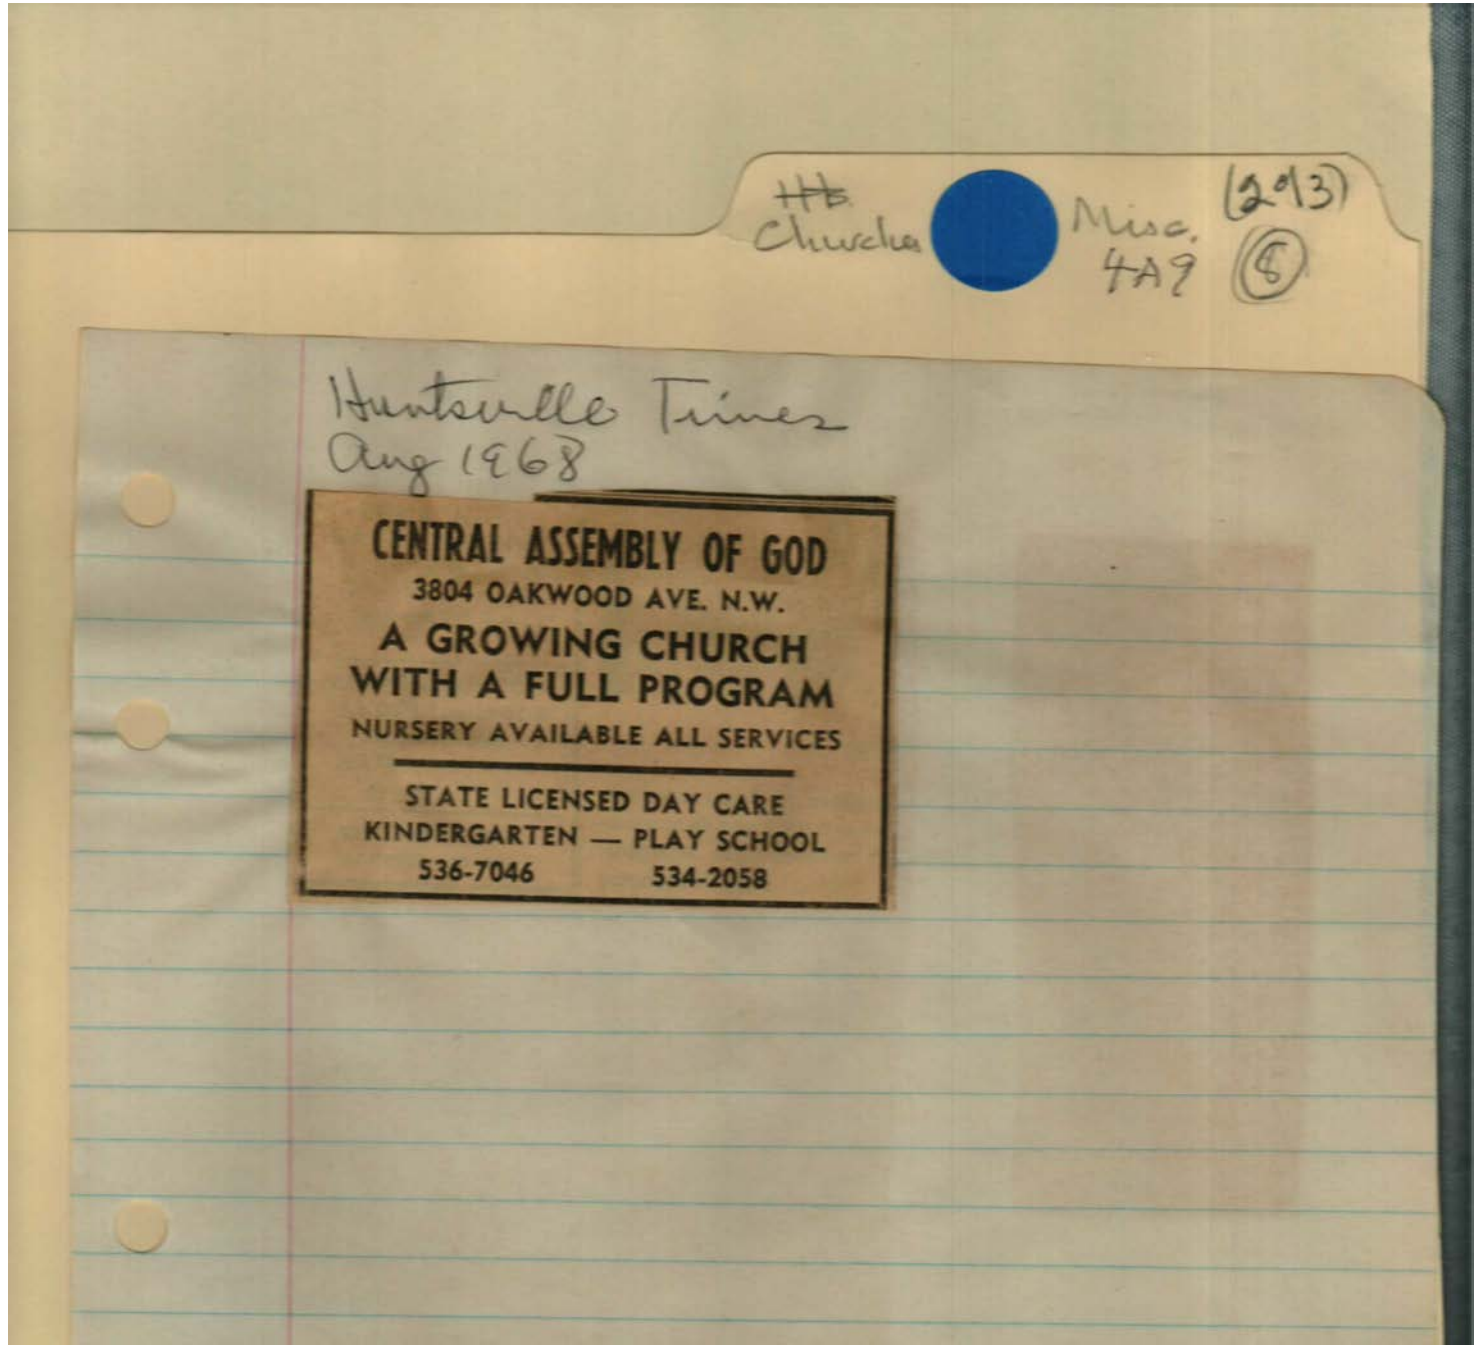 Churches
Misc.
4A9
(2 of 3)
8
Huntsville Times
Aug 1968
CENTRAL ASSEMBLY OF GOD
3804 OAKWOOD AVE. N.W.
A GROWING CHURCH
WITH A FULL PROGRAM
NURSERY AVAILABLE ALL SERVICES
STATE LICENSED DAY CARE
KINDERGARTEN — PLAY SCHOOL
536-7046 534-2058